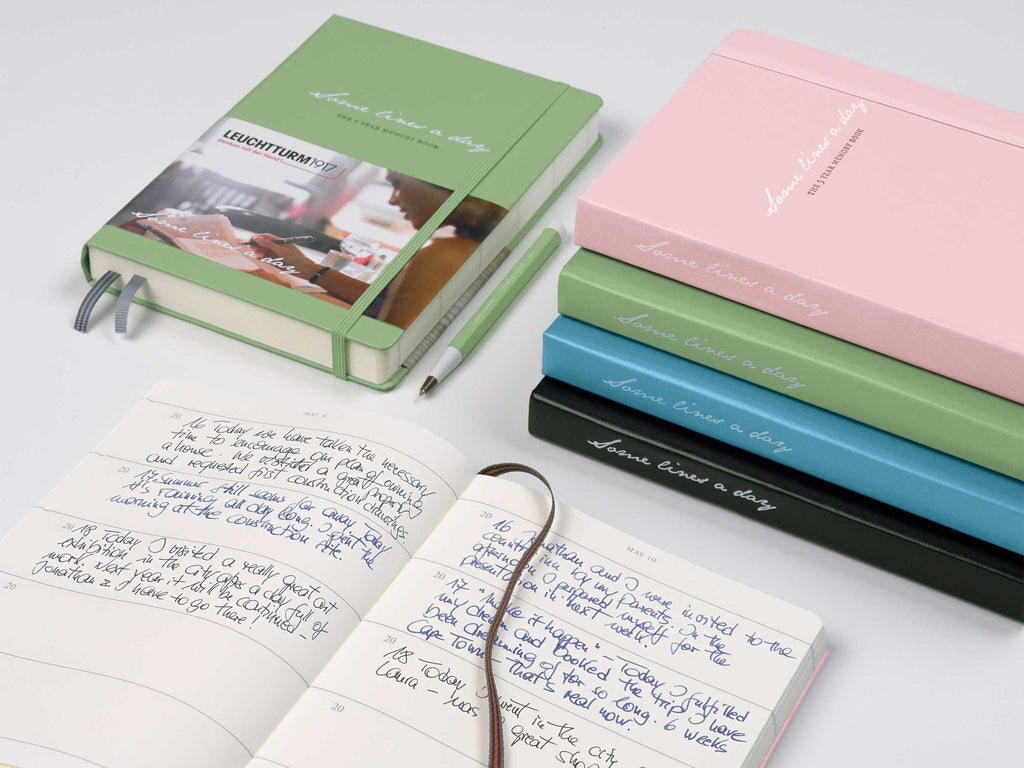 Some lines a day
THE 5 YEAR MEMORY BOOK
LEUCHTTURM1917
Denken mit der Hand
Some lines a day
Some lines a day
THE 5 YEAR MEMORY BOOK
Some lines a day
Some lines a day
Some lines a day
Some lines a day
MAY 9
20 16 Today we have taken the necessary
time to encourage our plan of owning
a house. We visited a great property
and requested first construction drawings
20 17 Summer still seems far away. Today
it's raining all day long. I spent the
morning at the construction site.
20 18 Today I visited a really great art
exhibition in the city after a day full of
work. Next year it will be continued –
Jonathan & I have to go there!
20
MAY 10
20 16 Jonathan and I were invited to the
country inn by my parents. In the
afternoon I prepared myself for the
presentation in next week.
20 17 "make it happen" – Today I fulfilled
my dream and booked the trip I have
been dreaming of for so long. 6 weeks
Cape Town – that's real now.
20 18 Today I went in the city
Laura – was great
20